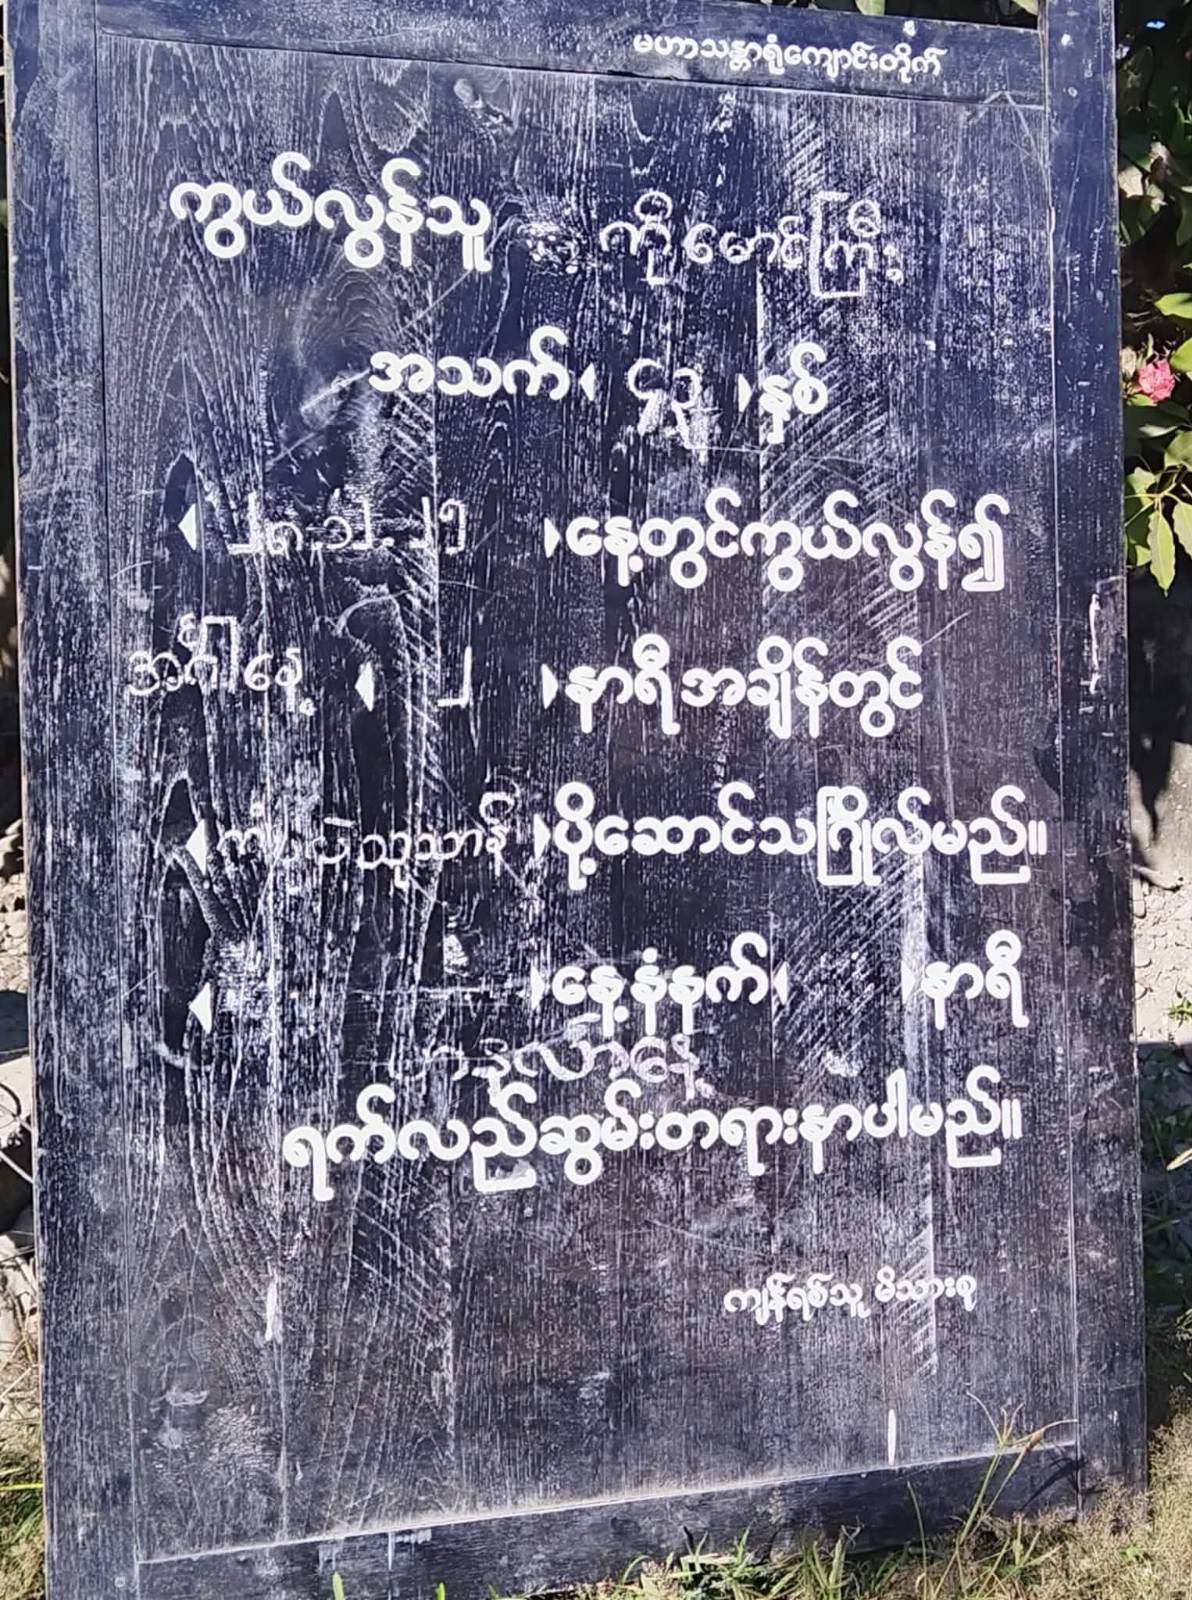 မဟာသန္တာရုံကျောင်းတိုက်
ကွယ်လွန်သူ ကိုမောင်ကြီး
အသက် ( ၄၃ ) နှစ်
( ၂၈.၁၁.၂၅ ) နေ့တွင်ကွယ်လွန်၍
အင်္ဂါနေ့ ( ၂ ) နာရီအချိန်တွင်
( သုသာန် ) ပို့ဆောင်သင်္ဂြိုလ်မည်။
( ) နေ့နံနက် ( ) နာရီ
ရက်လည်ဆွမ်းတရားနာပါမည်။
ကျန်ရစ်သူ မိသားစု